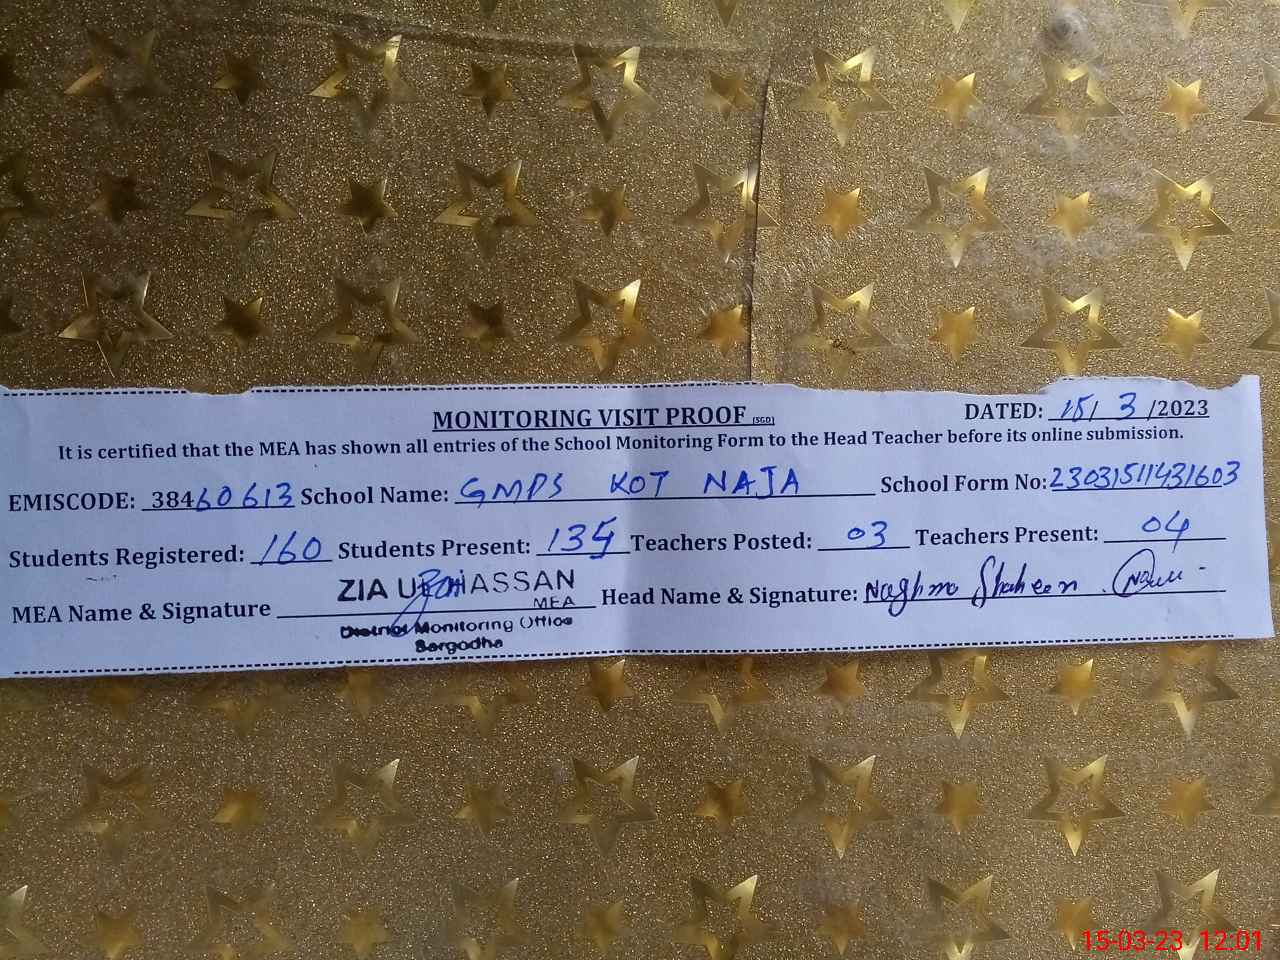 MONITORING VISIT PROOF (SGD) DATED: 15/ 3 /2023
It is certified that the MEA has shown all entries of the School Monitoring Form to the Head Teacher before its online submission.
EMISCODE: 38460613 School Name: GMPS KOT NAJA School Form No: 23031511431603
Students Registered: 160 Students Present: 135 Teachers Posted: 03 Teachers Present: 04
ZIA UL HASSAN
MEA Name & Signature MEA Head Name & Signature: Naghma Shaheen
District Monitoring Office
Sargodha
15-03-23 12:01